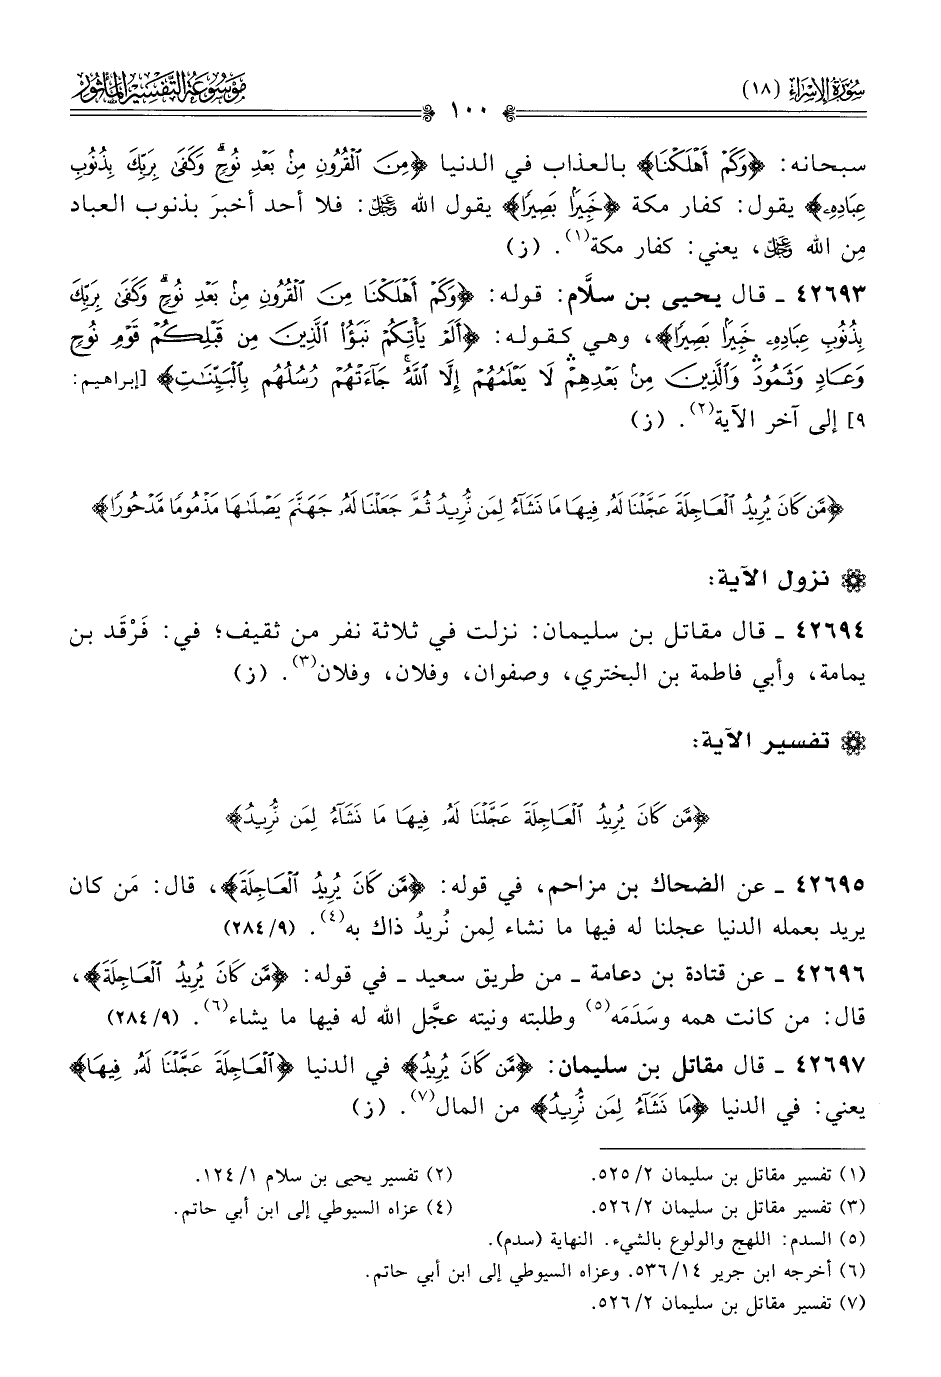 سُورَةُ الإِسْرَاء (١٨)
١٠٠
مَوْسُوعَة التَّفْسِير المَأْثُور
سبحانه: ﴿وَكَمْ أَهْلَكْنَا﴾ بالعذاب في الدنيا ﴿مِنَ الْقُرُونِ مِنْ بَعْدِ نُوحٍ وَكَفَى بِرَبِّكَ بِذُنُوبِ
عِبَادِهِ﴾ يقول: كفار مكة ﴿خَبِيرًا بَصِيرًا﴾ يقول الله ﷿: فلا أحد أخبرَ بذنوب العباد
مِن الله ﷿، يعني: كفار مكة(١). (ز)
٤٢٦٩٣ ـ قال يحيى بن سلَّام: قوله: ﴿وَكَمْ أَهْلَكْنَا مِنَ الْقُرُونِ مِنْ بَعْدِ نُوحٍ وَكَفَى بِرَبِّكَ
بِذُنُوبِ عِبَادِهِ خَبِيرًا بَصِيرًا﴾، وهي كقوله: ﴿أَلَمْ يَأْتِكُمْ نَبَؤُا الَّذِينَ مِن قَبْلِكُمْ قَوْمِ نُوحٍ
وَعَادٍ وَثَمُودَ وَالَّذِينَ مِنْ بَعْدِهِمْ لَا يَعْلَمُهُمْ إِلَّا اللَّهُ جَاءَتْهُمْ رُسُلُهُم بِالْبَيِّنَاتِ﴾ [إبراهيم:
٩] إلى آخر الآية(٢). (ز)
﴿مَّن كَانَ يُرِيدُ الْعَاجِلَةَ عَجَّلْنَا لَهُ فِيهَا مَا نَشَاءُ لِمَن نُّرِيدُ ثُمَّ جَعَلْنَا لَهُ جَهَنَّمَ يَصْلَاهَا مَذْمُومًا مَّدْحُورًا﴾
نزول الآية:
٤٢٦٩٤ ـ قال مقاتل بن سليمان: نزلت في ثلاثة نفر من ثقيف؛ في: فَرْقَد بن
يمامة، وأبي فاطمة بن البختري، وصفوان، وفلان، وفلان(٣). (ز)
تفسير الآية:
﴿مَّن كَانَ يُرِيدُ الْعَاجِلَةَ عَجَّلْنَا لَهُ فِيهَا مَا نَشَاءُ لِمَن نُّرِيدُ﴾
٤٢٦٩٥ ـ عن الضحاك بن مزاحم، في قوله: ﴿مَّن كَانَ يُرِيدُ الْعَاجِلَةَ﴾، قال: مَن كان
يريد بعمله الدنيا عجلنا له فيها ما نشاء لِمن نُريدُ ذاك به(٤). (٢٨٤/٩)
٤٢٦٩٦ ـ عن قتادة بن دعامة ـ من طريق سعيد ـ في قوله: ﴿مَّن كَانَ يُرِيدُ الْعَاجِلَةَ﴾،
قال: من كانت همه وسَدَمَه(٥) وطلبته ونيته عجَّل الله له فيها ما يشاء(٦). (٢٨٤/٩)
٤٢٦٩٧ ـ قال مقاتل بن سليمان: ﴿مَّن كَانَ يُرِيدُ﴾ في الدنيا ﴿الْعَاجِلَةَ عَجَّلْنَا لَهُ فِيهَا﴾
يعني: في الدنيا ﴿مَا نَشَاءُ لِمَن نُّرِيدُ﴾ من المال(٧). (ز)
(١) تفسير مقاتل بن سليمان ٥٢٥/٢. (٢) تفسير يحيى بن سلام ١٢٤/١.
(٣) تفسير مقاتل بن سليمان ٥٢٦/٢. (٤) عزاه السيوطي إلى ابن أبي حاتم.
(٥) السدم: اللهج والولوع بالشيء. النهاية (سدم).
(٦) أخرجه ابن جرير ٥٣٦/١٤. وعزاه السيوطي إلى ابن أبي حاتم.
(٧) تفسير مقاتل بن سليمان ٥٢٦/٢.